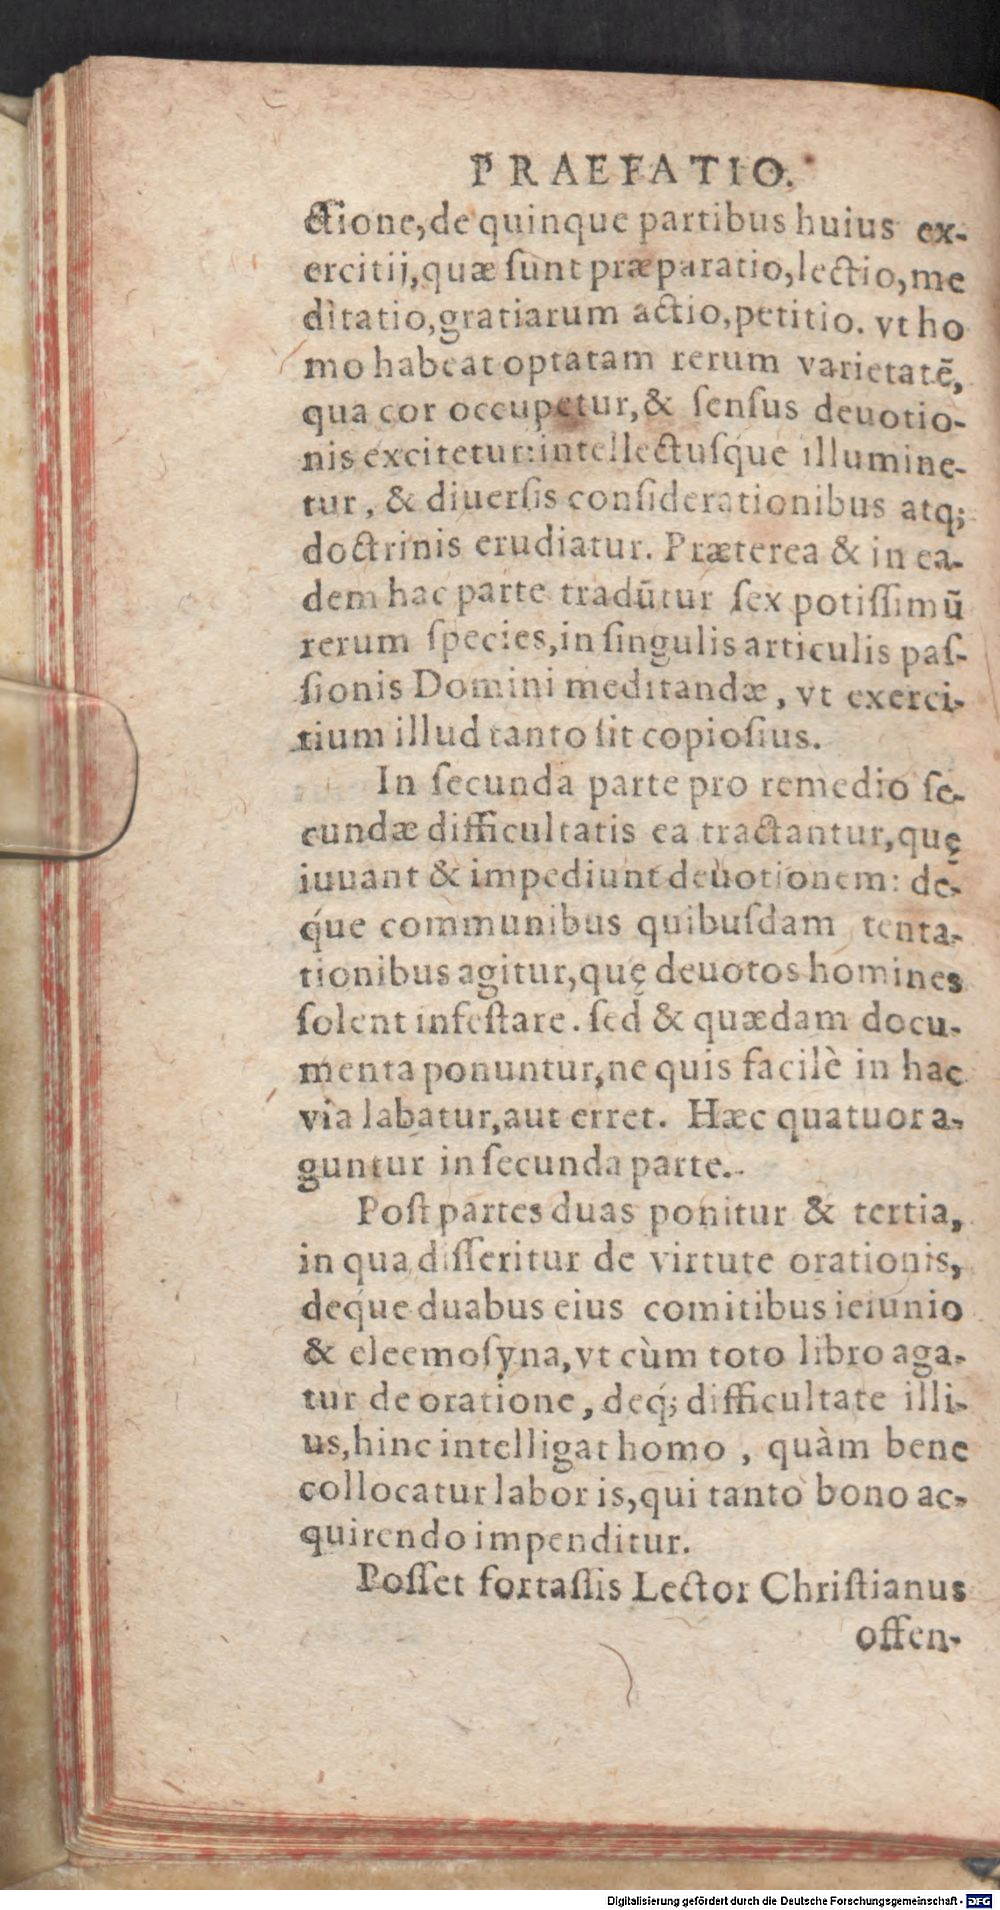 PRAEFATIO.
ctione, de quinque partibus huius ex-
ercitij, quæ ſunt præparatio, lectio, me
ditatio, gratiarum actio, petitio. vt ho
mo habeat optatam rerum varietatē,
qua cor occupetur, & ſenſus deuotio-
nis excitetur: intellectuſq́ue illumine-
tur, & diuerſis conſiderationibus atq;
doctrinis erudiatur. Præterea & in ea-
dem hac parte tradūtur ſex potiſſimū
rerum ſpecies, in ſingulis articulis paſ-
ſionis Domini meditandæ, vt exerci-
tium illud tanto ſit copioſius.
In ſecunda parte pro remedio ſe-
cundæ difficultatis ea tractantur, quę
iuuant & impediunt deuotionem: de-
q́ue communibus quibuſdam tenta-
tionibus agitur, quę deuotos homines
ſolent infeſtare. ſed & quædam docu-
menta ponuntur, ne quis facilè in hac
via labatur, aut erret. Hæc quatuor a-
guntur in ſecunda parte.
Poſt partes duas ponitur & tertia,
in qua diſſeritur de virtute orationis,
deq́ue duabus eius comitibus ieiunio
& eleemoſyna, vt cùm toto libro aga-
tur de oratione, deq́; difficultate illi-
us, hinc intelligat homo, quàm bene
collocatur labor is, qui tanto bono ac-
quirendo impenditur.
Poſſet fortaſſis Lector Chriſtianus
offen-
Digitalisierung gefördert durch die Deutsche Forschungsgemeinschaft - DFG